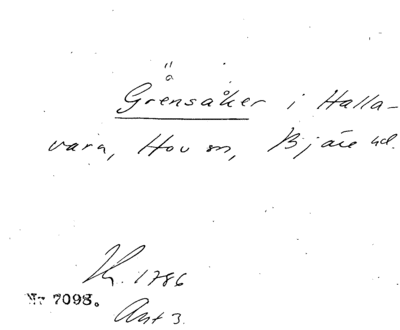 Grensåker i Halla-
vara, Hov sn, Bjäre hd.
Kr. 1786
Nr 7098.
Avt 3.